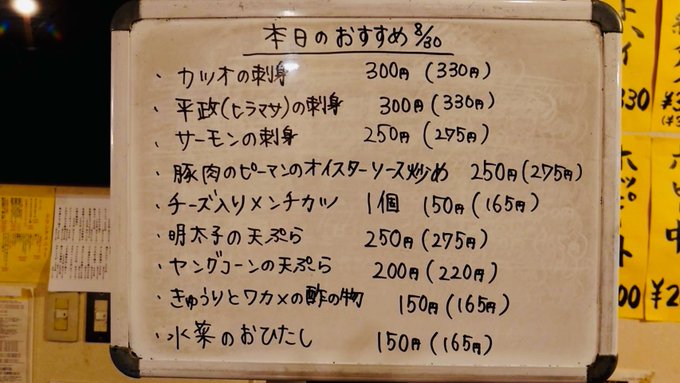 本日のおすすめ 8/30
・カツオの刺身 300円(330円)
・平政(ヒラマサ)の刺身 300円(330円)
・サーモンの刺身 250円(275円)
・豚肉のピーマンのオイスターソース炒め 250円(275円)
・チーズ入りメンチカツ 1個 150円(165円)
・明太子の天ぷら 250円(275円)
・ヤングコーンの天ぷら 200円(220円)
・きゅうりとワカメの酢の物 150円(165円)
・水菜のおひたし 150円(165円)